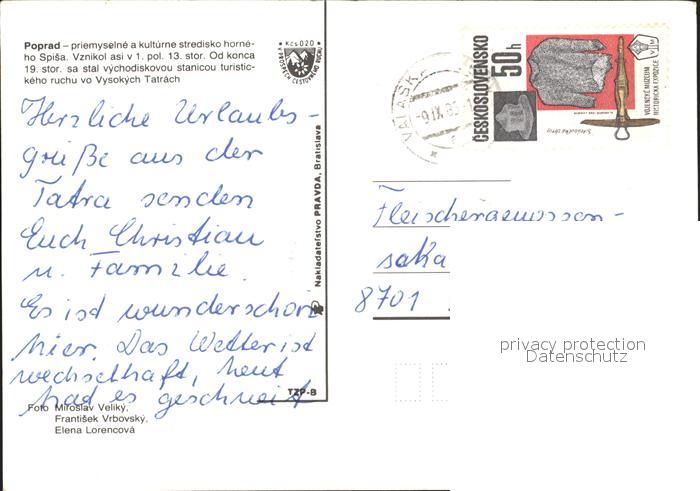 Poprad – priemyselné a kultúrne stredisko horné-
ho Spiša. Vznikol asi v 1. pol. 13. stor. Od konca
19. stor. sa stal východiskovou stanicou turistic-
kého ruchu vo Vysokých Tatrách
Kčs 0,20
Herzliche Urlaubs-
grüße aus der
Tatra senden
Euch Christian
u. Familie.
Es ist wunderschön
hier. Das Wetter ist
wechselhaft, heut
had es geschneit
Foto Miroslav Veliký,
František Vrbovský,
Elena Lorencová
TZP-B
Nakladateľstvo PRAVDA, Bratislava
-9.IX.85
ČESKOSLOVENSKO
50h
VOJENSKÉ MUZEUM
HISTORICKÁ EXPOZICE
8701
privacy protection
Datenschutz